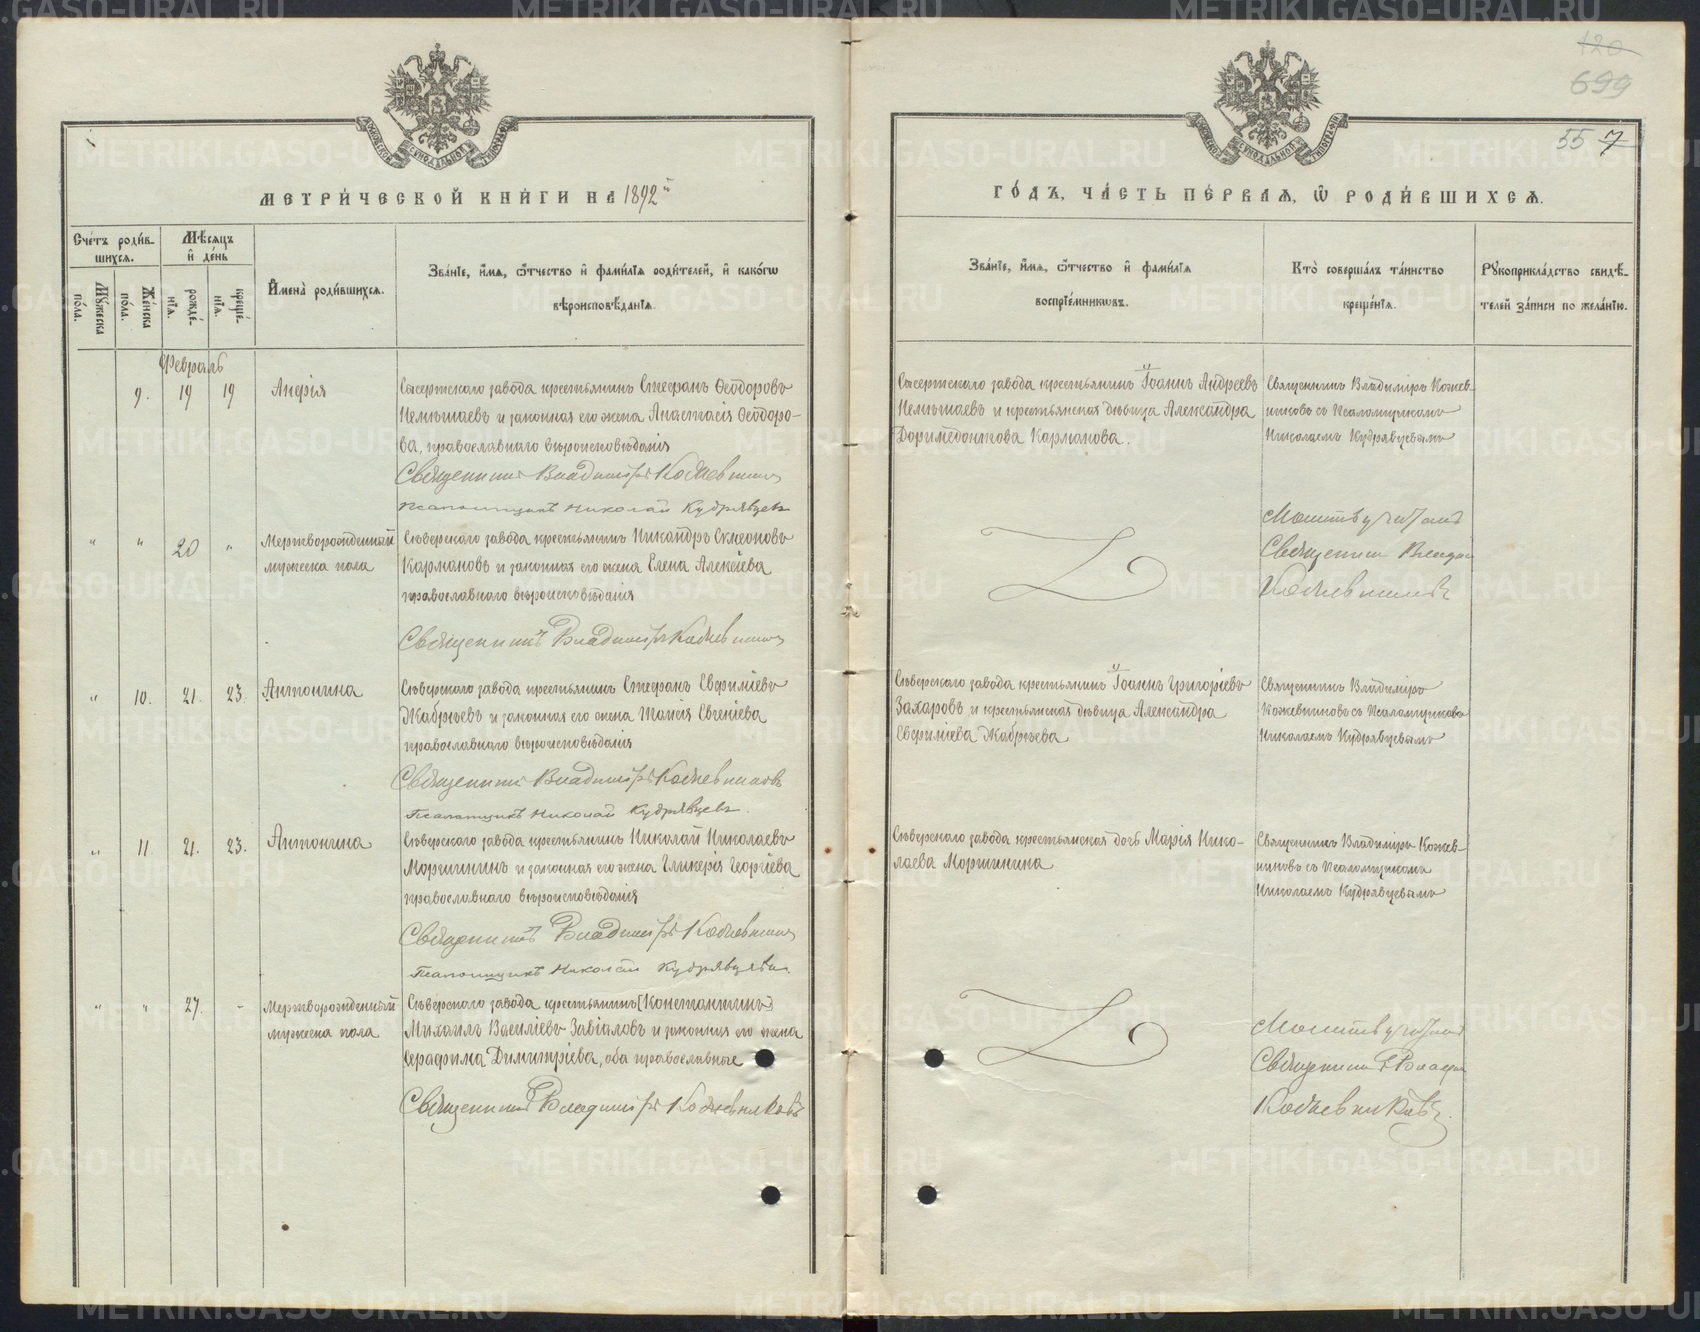 120
699
55 7
МЕТРИ́ЧЕСКОЙ КНИ́ГИ НА 1892й
ГО́ДЪ, ЧА́СТЬ ПЕ́РВАЯ, Ѿ РОДИ́ВШИХСЯ.
Сче́тъ роди́в-
шихся.
Мѣ́сяцъ
и҆ де́нь
Му́жеска
по́ла.
Же́нска
по́ла.
рожде́-
нїя.
креще́-
нїя.
И҆мена̀ роди́вшихся.
Зва́нїе, и҆́мя, ѻ҆́тчество и҆ фами́лїя роди́телей, и҆ како́гѡ
вѣроисповѣ́данїя.
Зва́нїе, и҆́мя, ѻ҆́тчество и҆ фами́лїя
воспрїе́мникѡвъ.
Кто̀ соверша́лъ та́инство
креще́нїя.
Рꙋкоприкла́дство свидѣ́-
телей за́писи по жела́нїю.
Февраль
9. 19 19
Анфія
Сысертскаго завода крестьянинъ Стефанъ Ѳеодоровъ
Немытаевъ и законная его жена Анастасія Ѳеодоро-
ва, православнаго вѣроисповѣданія
Священникъ Владиміръ Кожевниковъ
Псаломщикъ Николай Кудрявцевъ
Сысертскаго завода крестьянинъ Іоаннъ Андреевъ
Немытаевъ и крестьянская дѣвица Александра
Доримедонтова Карманова.
Священникъ Владиміръ Кожев-
никовъ съ Псаломщикомъ
Николаемъ Кудрявцевымъ
" " 20 "
Мертворожденный
мужеска пола
Сѣверскаго завода крестьянинъ Никандръ Симеоновъ
Кармановъ и законная его жена Елена Алексіева
православнаго вѣроисповѣданія
Священникъ Владиміръ Кожевниковъ
Молитву читалъ
Священникъ Владим
Кожевниковъ
" 10. 21. 23.
Антонина
Сѣверскаго завода крестьянинъ Стефанъ Евфиміевъ
Жабрѣевъ и законная его жена Таисія Евгеніева
православнаго вѣроисповѣданія
Священникъ Владиміръ Кожевниковъ
Псаломщикъ Николай Кудрявцевъ.
Сѣверскаго завода крестьянинъ Іоаннъ Григоріевъ
Захаровъ и крестьянская дѣвица Александра
Евфиміева Жабрѣева
Священникъ Владиміръ
Кожевниковъ съ Псаломщикомъ
Николаемъ Кудрявцевымъ
" 11. 21. 23.
Антонина
Сѣверскаго завода крестьянинъ Николай Николаевъ
Моршининъ и законная его жена Гликерія Георгіева
православнаго вѣроисповѣданія
Священникъ Владиміръ Кожевниковъ
Псаломщикъ Николай Кудрявцевъ.
Сѣверскаго завода крестьянская дочь Марія Нико-
лаева Моршинина
Священникъ Владиміръ Кожев-
никовъ съ Псаломщикомъ
Николаемъ Кудрявцевымъ
" " 27. -
Мертворожденный
мужеска пола
Сѣверскаго завода крестьянинъ (Константинъ)
Михаилъ Василіевъ Завіаловъ и законная его жена
Серафима Димитріева, оба православные
Священникъ Владиміръ Кожевниковъ
Молитву читалъ
Священникъ Владим
Кожевниковъ.
METRIKI.GASO-URAL.RU